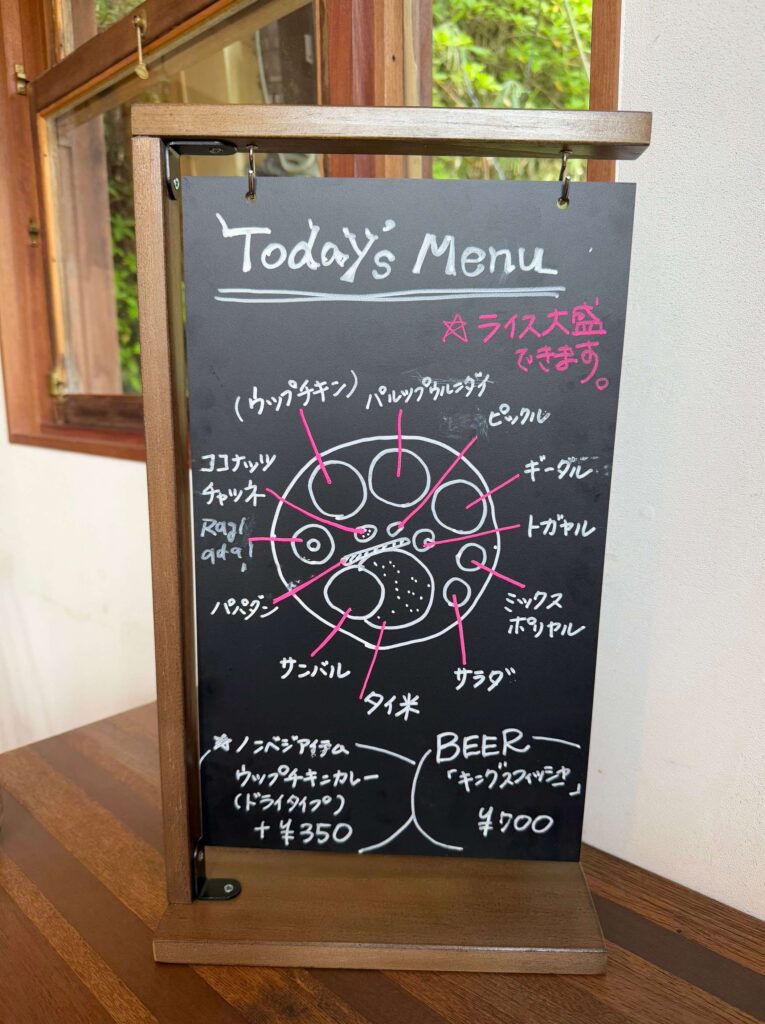 Today's Menu
☆ライス大盛
できます。
(ウップチキン)
パルップウルンダイ
ピックル
ココナッツ
チャツネ
ギーダル
Ragi
トガヤル
パパダン
ミックス
ポリヤル
サンバル
サラダ
タイ米
☆ノンベジアイテム
ウップチキンカレー
(ドライタイプ)
+ ¥350
BEER
「キングスフィッシャー」
¥700